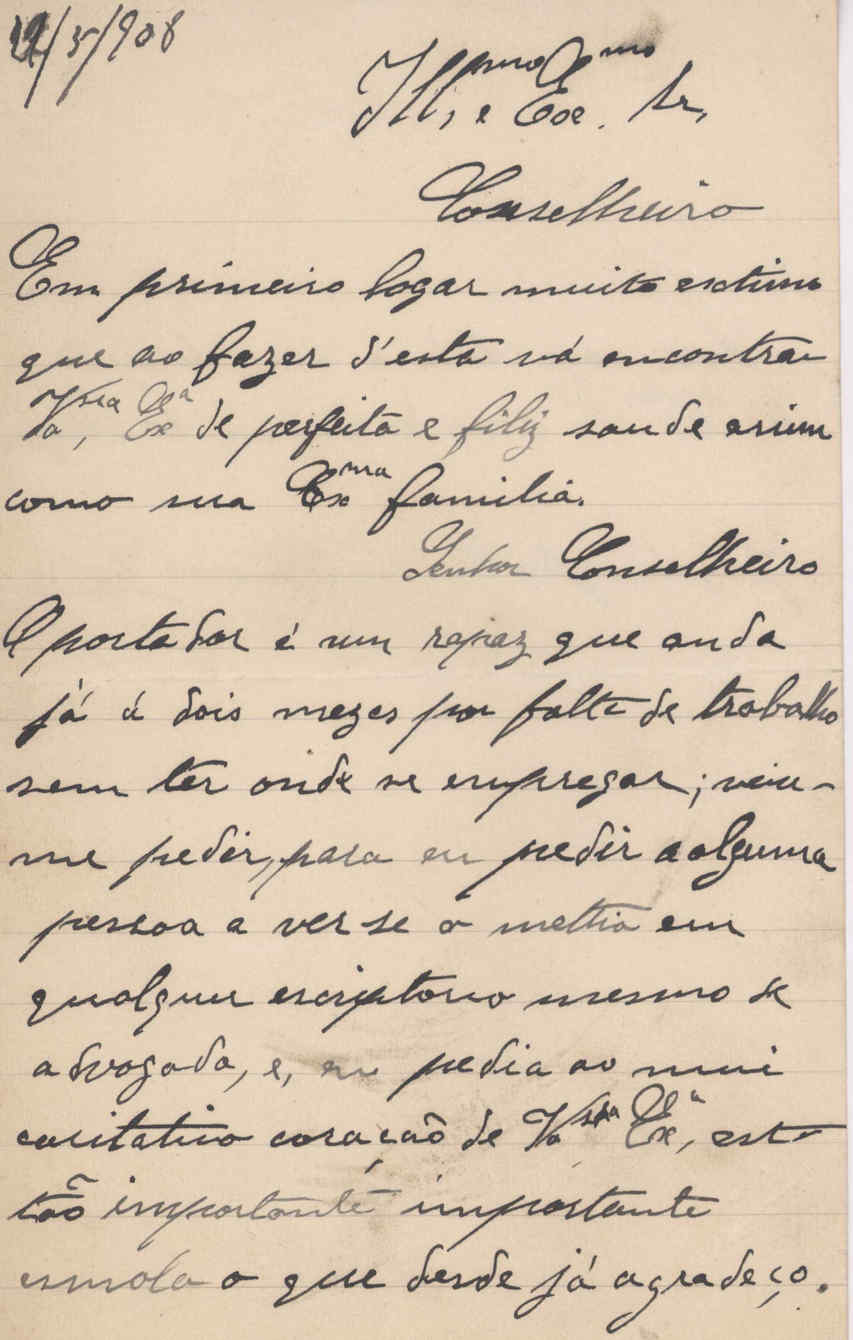 /5/908
Ill.mo e Exmo. Sr.
Conselheiro
Em primeiro logar muito extimo
que ao fazer d'esta vá encontrar
Vossa, Exa de perfeita e filiz saude assim
como sua Exma familia.
Senhor Conselheiro
O portador é um rapaz que anda
já á dois mezes por falta de trabalho
sem ter onde se empregar; veiu-
me pedir, para eu pedir a alguma
pessoa a ver se o mettia em
qualquer escriptorio mesmo de
advogado, e, eu pedia ao mui
caritativo coração de Vossa Exa, esta
tão importante importante
esmola o que desde já agradeço.